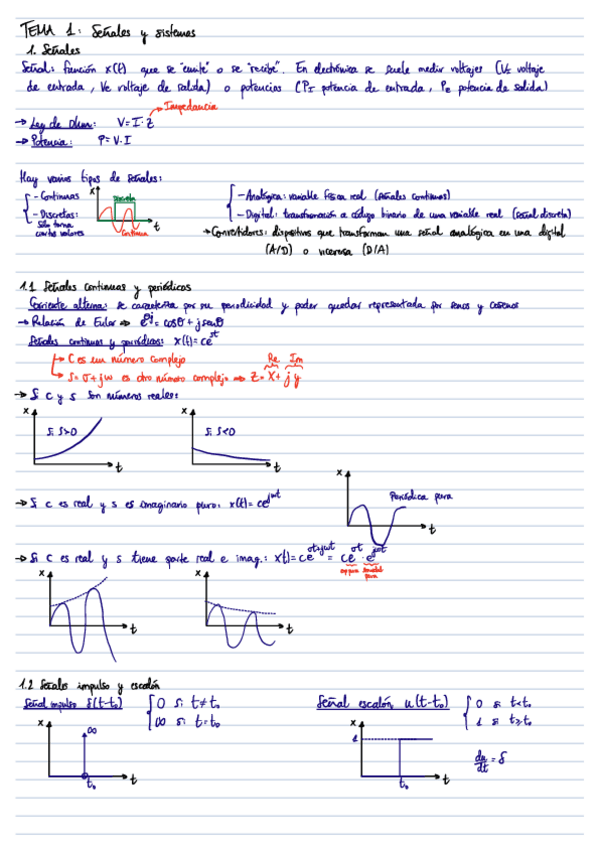 TEMA 1: Señales y sistemas
1. Señales
Señal: función x(t) que se "emite" o se "recibe". En electrónica se suele medir voltajes (Vs voltaje
de entrada, Ve voltaje de salida) o potencias (PI potencia de entrada, Pe potencia de salida)
→ Impedancia
→ Ley de Ohm: V=I·Z
→ Potencia: P=V·I
Hay varios tipos de señales:
- Continuas
- Discretas:
Sólo toma
ciertos valores
x
Discreta
Continua
t
- Analógica: variable física real (señales continuas)
- Digital: transformación a código binario de una variable real (señal discreta)
→ Convertidores: dispositivos que transforman una señal analógica en una digital
(A/D) o viceversa (D/A)
1.1 Señales continuas y periódicas
Corriente alterna: se caracteriza por su periodicidad y poder quedar representada por senos y cosenos
→ Relación de Euler ⇒ e^θj = cosθ + jsenθ
Señales continuas y periódicas: x(t)=ce^st
→ C es un número complejo
Re Im
→ S=σ+jω es otro número complejo ⇒ z= x + j y
→ Si c y s son números reales:
x
Si S>0
t
x
Si S<0
t
→ Si c es real y s es imaginario puro: x(t)=ce^jωt
x
Periódica pura
t
→ Si c es real y s tiene parte real e imag.: x(t)=ce^σt+jωt = ce^σt · e^jωt
pura
x
t
x
t
1.2 Señales impulso y escalón
Señal impulso δ(t-t₀) { 0 si t≠t₀
∞ si t=t₀
x
∞
t₀
t
Señal escalón u(t-t₀) { 0 si t<t₀
1 si t≥t₀
x
1
t₀
t
du/dt = δ